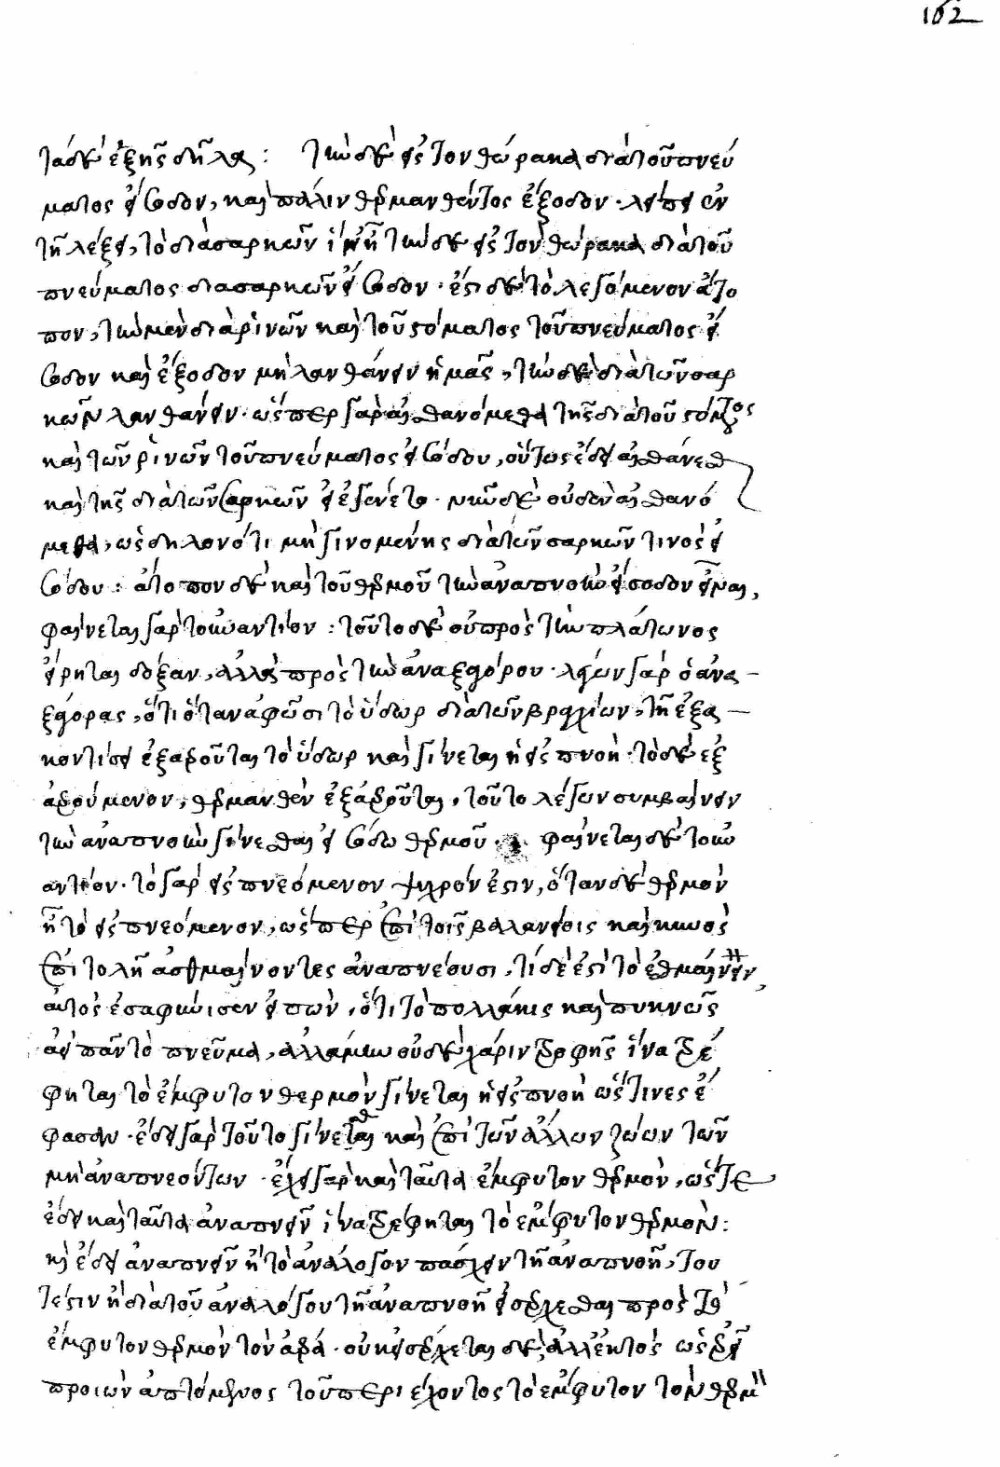 162
τὰ δ' ἑξῆς δῆλα: τὴν δ' εἰς τὸν θώρακα διὰ τοῦ πνεύ
ματος εἴσοδον, καὶ πάλιν θερμανθέντος ἔξοδον. λείπει ἐν
τῇ λέξει, τὸ διὰ σαρκῶν ἵν' ᾖ τὴν δ' εἰς τὸν θώρακα διὰ τοῦ
πνεύματος διὰ σαρκῶν εἴσοδον. ἔστι δὲ τὸ λεγόμενον ἄτο
πον, τὴν μὲν διὰ ῥινῶν καὶ τοῦ στόματος τοῦ πνεύματος εἴ
σοδον καὶ ἔξοδον μὴ λανθάνειν ἡμᾶς, τὴν δὲ διὰ τῶν σαρ
κῶν λανθάνειν. ὥσπερ γὰρ αἰσθανόμεθα τῆς διὰ τοῦ στόματος
καὶ τῶν ῥινῶν τοῦ πνεύματος εἰσόδου, οὕτως ἔδει αἰσθάνεσθαι
καὶ τῆς διὰ τῶν σαρκῶν εἰ ἐγένετο. νῦν δὲ οὐδὲν αἰσθανό
μεθα, ὡς δηλονότι μὴ γινομένης διὰ τῶν σαρκῶν τινὸς εἰ
σόδου: ἄτοπον δὲ καὶ τοῦ θερμοῦ τὴν ἀναπνοὴν εἴσοδον εἶναι,
φαίνεται γὰρ τοὐναντίον: τοῦτο δὲ οὐ πρὸς τὴν πλάτωνος
εἴρηται δόξαν, ἀλλὰ πρὸς τὴν ἀναξαγόρου. λέγων γὰρ ὁ ἀνα
ξαγόρας, ὅτι ὅταν ἀφῶσι τὸ ὕδωρ διὰ τῶν βραγχίων, τῇ ἐξα
κοντίσει ἐξαεροῦται τὸ ὕδωρ καὶ γίνεται ἡ εἰσπνοή. τὸ δὲ ἐξ
αερούμενον, θερμανθὲν ἐξαεροῦται, τοῦτο λέγων συμβαίνειν
τὴν ἀναπνοὴν γίνεσθαι εἰσόδω θερμοῦ. φαίνεται δὲ τοὐν
αντίον. τὸ γὰρ εἰσπνεόμενον ψυχρόν ἐστιν, ὅταν δὲ θερμὸν
ᾖ τὸ εἰσπνεόμενον, ὥσπερ ἐπὶ τοῖς βαλανείοις καὶ
ἀσθμαίνοντες ἀναπνέουσι, τί δέ ἐστι τὸ
αὐτὸς ἐσαφήνισεν εἰπὼν, ὅτι τὸ πολλάκις καὶ πυκνῶς
πνεῦμα, ἀλλὰ μὴν οὐδὲ χάριν τροφῆς ἵνα τρέ
φηται τὸ ἔμφυτον θερμὸν γίνεται ἡ εἰσπνοὴ ὥς τινες ἔ
φασαν. ἔδει γὰρ τοῦτο γίνεσθαι καὶ ἐπὶ τῶν ἄλλων ζώων τῶν
μὴ ἀναπνεόντων. ἔχει γὰρ καὶ ταῦτα ἔμφυτον θερμὸν, ὥστε
ἔδει καὶ ταῦτα ἀναπνεῖν ἵνα τρέφηται τὸ ἔμφυτον θερμόν:
καὶ ἔδει ἀναπνεῖν ἢ τὸ ἀνάλογον πάσχειν τῇ ἀναπνοῇ, του
τέστιν ἢ διὰ τοῦ ἀναλόγου τῇ ἀναπνοῇ εἰσέρχεσθαι πρὸς τὸ
ἔμφυτον θερμὸν τὸν ἀέρα. οὐκ εἰσέρχεται δὲ, ἀλλ' ἐκτὸς ὡς ἔχει
προϊὼν ἁπτόμενος τοῦ περιέχοντος τὸ ἔμφυτον τὸν θερμὸν